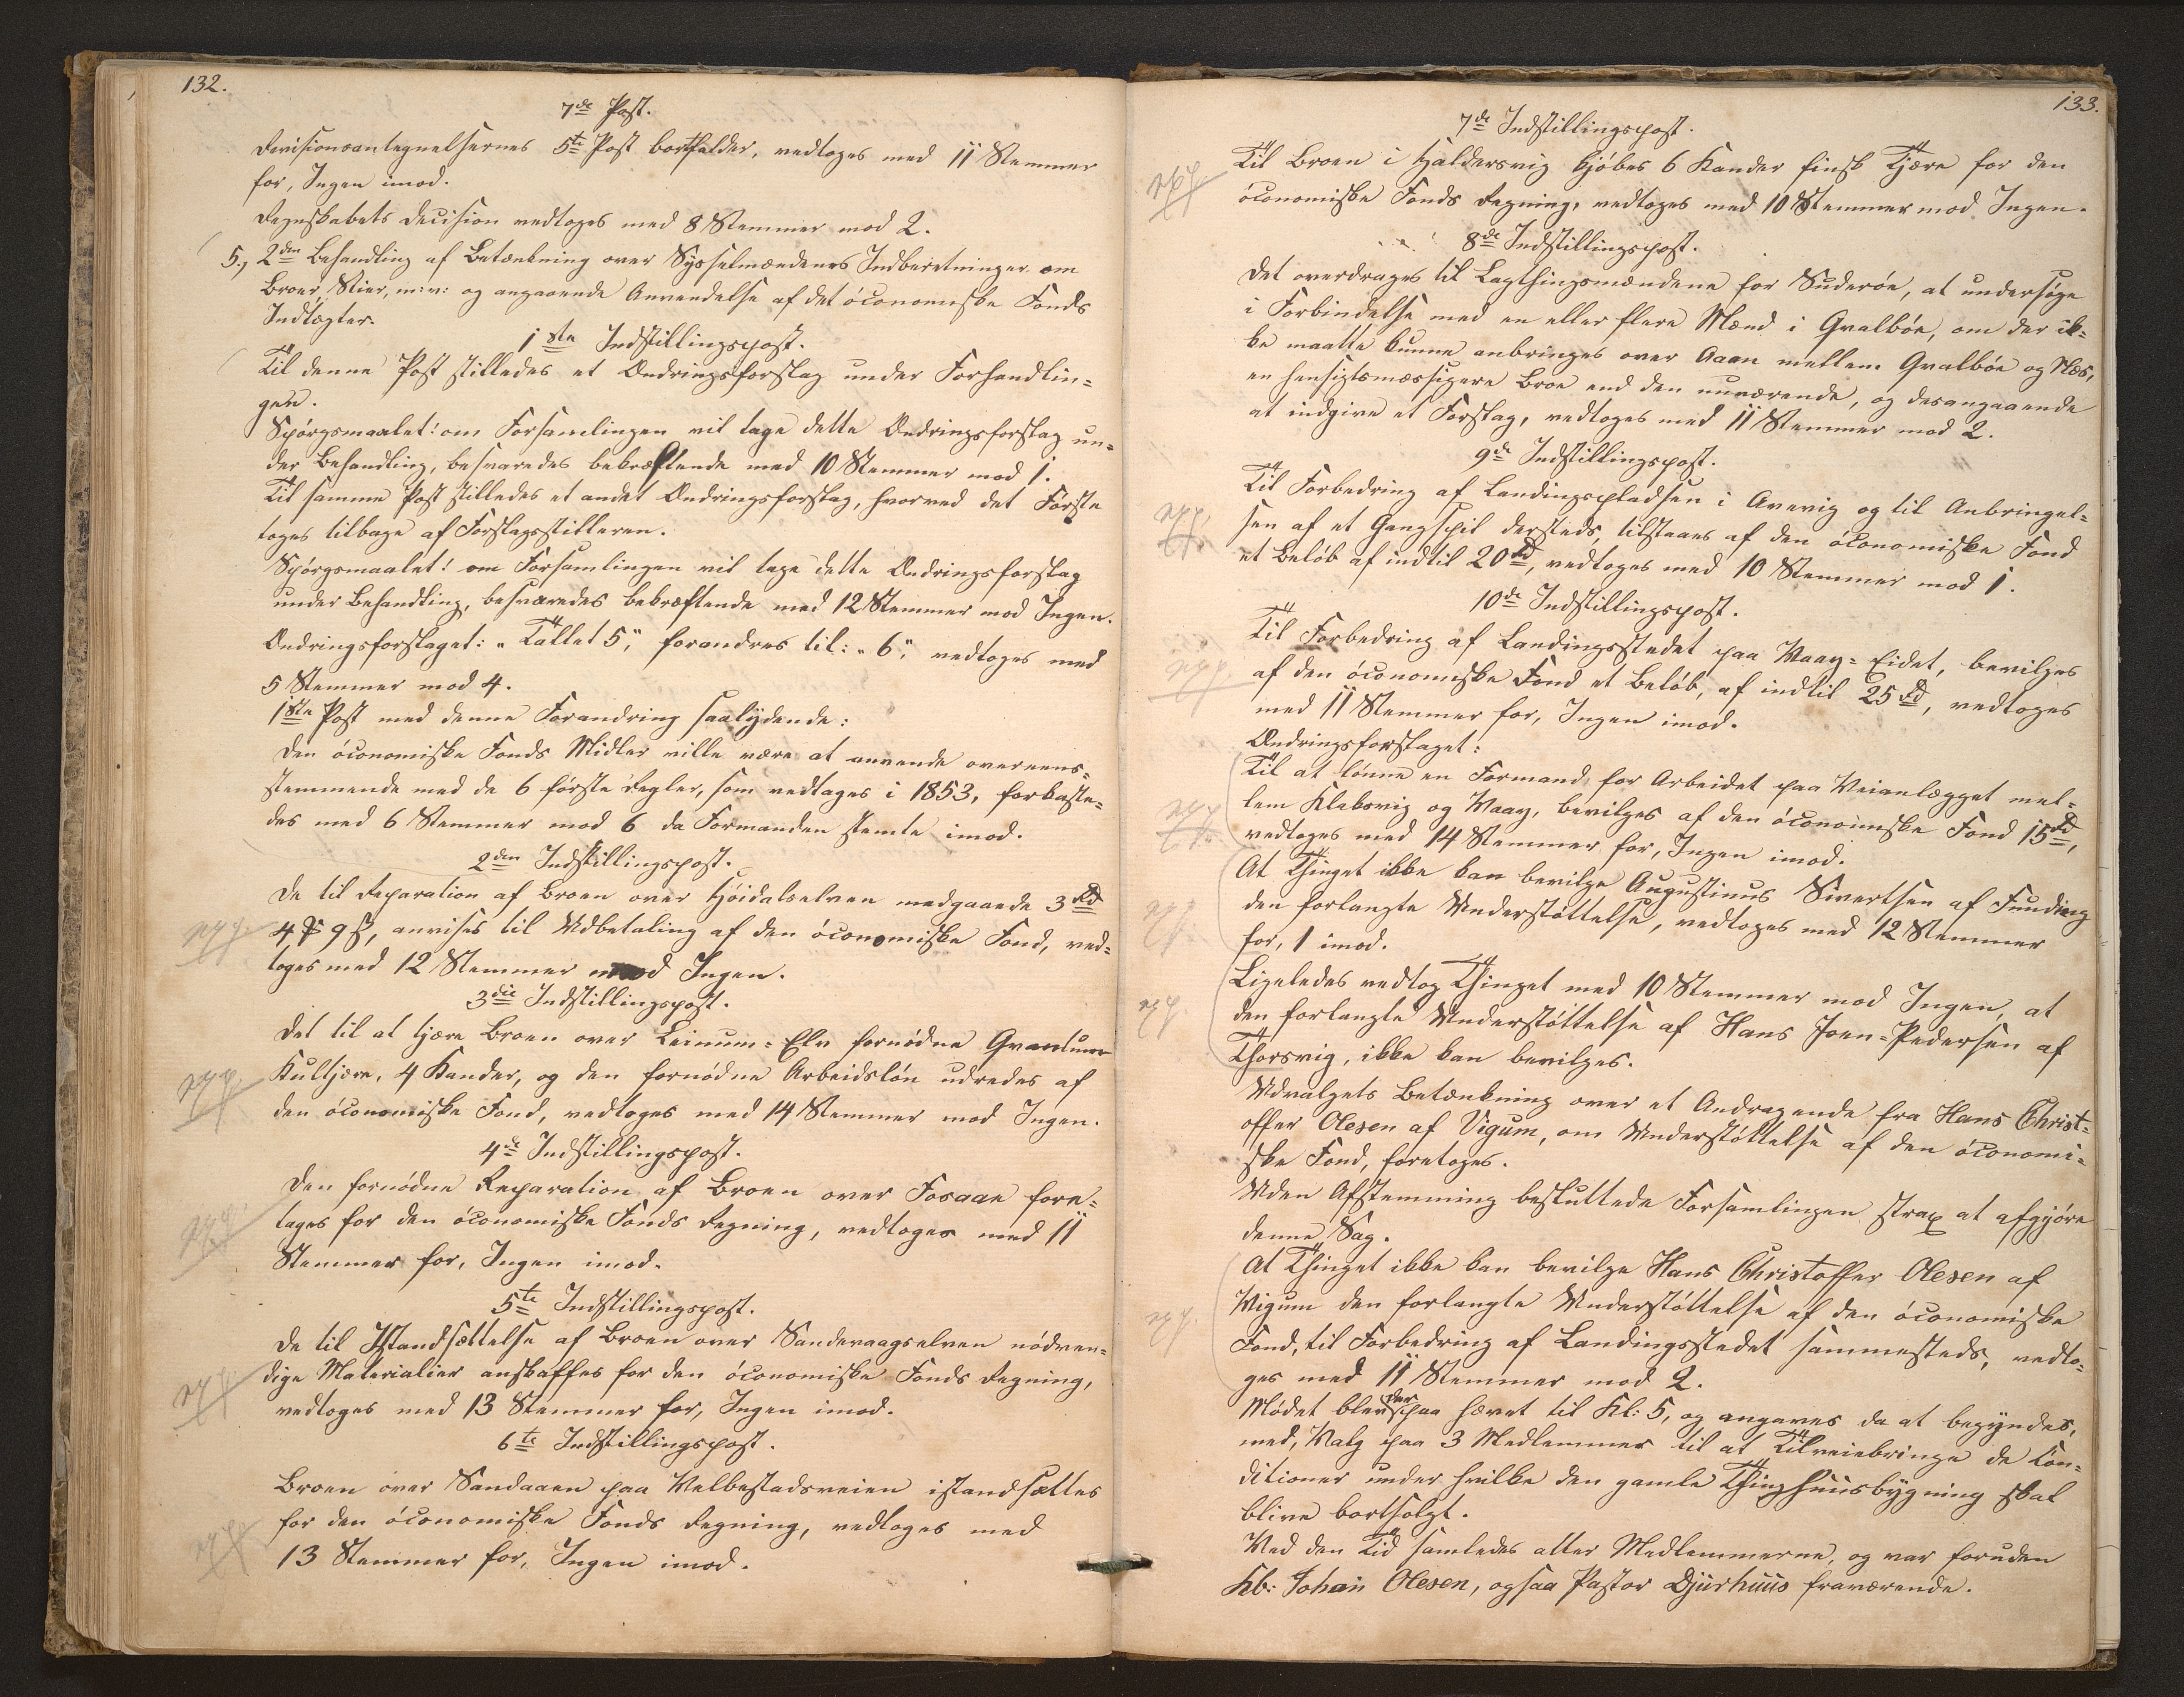 132.
7de Post.
Decisionsantegnelsernes 5te Post bortfalder, vedtoges med 11 Stemmer
for, Ingen imod.
Regnskabets Decision vedtoges med 8 Stemmer mod 2.
5., 2den Behandling af Betænkning over Sysselmændenes Indberetninger om
Broer, Stier, m: v: og angaaende Anvendelse af det óconomiske Fonds
Indtægter.
1ste Indstillingspost.
Til denne Post stilledes et Ændringsforslag under Forhandlin-
gen.
Spörgsmaalet: om Forsamlingen vil tage dette Ændringsforslag un-
der Behandling, besvaredes bekræftende med 10 Stemmer mod 1.
Til samme Post stilledes et andet Ændringsforslag, hvorved det Förste
toges tilbage af Forslagsstilleren.
Spörgsmaalet: om Forsamlingen vil tage dette Ændringsforslag
under Behandling, besvaredes bekræftende med 12 Stemmer mod Ingen.
Ændringsforslaget: „Tallet 5", forandres til: „6", vedtoges med
5 Stemmer mod 4.
1ste Post med denne Forandring saalydende:
Den óconomiske Fonds Midler ville være at anvende overeens-
stemmende med de 6 förste Regler, som vedtoges i 1853, forkaste-
des med 6 Stemmer mod 6 da Formanden stemte imod.
2den Indstillingspost.
De til Reparation af Broen over Höidalselven medgaaede 3 Rd
4 Mk 9 ß, anvises til Udbetaling af den óconomiske Fond, ved-
toges med 12 Stemmer mod Ingen.
3die Indstillingspost.
Det til at tjære Broen over Leinum-Elv fornódne Quantum
Kultjære, 4 Kander, og den fornódne Arbeidslón udredes af
den óconomiske Fond, vedtoges med 14 Stemmer mod Ingen.
4de Indstillingspost.
Den fornódne Reparation af Broen over Fosaae fore-
tages for den óconomiske Fonds Regning, vedtoges med 11
Stemmer for, Ingen imod.
5te Indstillingspost.
De til Istandsættelse af Broen over Sandevaagselven nódven-
dige Materialier anskaffes for den óconomiske Fonds Regning,
vedtoges med 13 Stemmer for, Ingen imod.
6te Indstillingspost.
Broen over Sandaaen paa Velbestadsveien istandsættes
for den óconomiske Fonds Regning, vedtoges med
13 Stemmer for, Ingen imod.
133.
7de Indstillingspost.
Til Broen i Haldersvig kjóbes 6 Kander finsk Tjære for den
óconomiske Fonds Regning, vedtoges med 10 Stemmer mod Ingen.
8de Indstillingspost.
Det overdrages til Lagthingsmændene for Suderóe, at undersöge
i Forbindelse med en eller flere Mænd i Qvalbóe, om der ik-
ke maatte kunne anbringes over Aaen mellem Qvalbóe og Næs,
en hensigtsmæssigere Broe end den nuværende, og desangaaende
at indgive et Forslag, vedtoges med 11 Stemmer mod 2.
9de Indstillingspost.
Til Forbedring af Landingspladsen i Arevig og til Anbringel-
sen af et Gangspil dersteds, tilstaaes af den óconomiske Fond
et Belób af indtil 20 Rd, vedtoges med 10 Stemmer mod 1.
10de Indstillingspost.
Til Forbedring af Landingsstedet paa Waag-Eidet, bevilges
af den óconomiske Fond et Belób, af indtil 25 Rd, vedtoges
med 11 Stemmer for, Ingen imod.
Ændringsforslaget:
Til at lónne en Formand for Arbeidet paa Veianlægget mel-
lem Klaksvig og Waag, bevilges af den óconomiske Fond 15 Rd,
vedtoges med 14 Stemmer for, Ingen imod.
At Thinget ikke kan bevilge Augustinus Sivertsen af Funding
den forlangte Understóttelse, vedtoges med 12 Stemmer
for, 1 imod.
Ligeledes vedtog Thinget med 10 Stemmer mod Ingen, at
den forlangte Understóttelse af Hans Joen-Pedersen af
Thorsvig, ikke kan bevilges.
Udvalgets Betænkning over et Andragende fra Hans Christ-
offer Olesen af Vigum, om Understóttelse af den óconomi-
ske Fond, foretoges.
Uden Afstemming besluttede Forsamlingen strax at afgjóre
denne Sag.
At Thinget ikke kan bevilge Hans Christoffer Olesen af
Vigum den forlangte Understóttelse af den óconomiske
Fond, til Forbedring af Landingsstedet sammesteds, vedto-
ges med 11 Stemmer mod 2.
Módet blev derpaa hævet til Kl: 5, og angaves da at begyndes,
med, Valg paa 3 Medlemmer til at Tilveiebringe de Con-
ditioner under hvilke den gamle Thinghuusbygning skal
blive bortsolgt.
Ved den Tid samledes atter Medlemmerne, og var foruden
Kb: Johan Olesen, ogsaa Pastor Djurhuus fraværende.